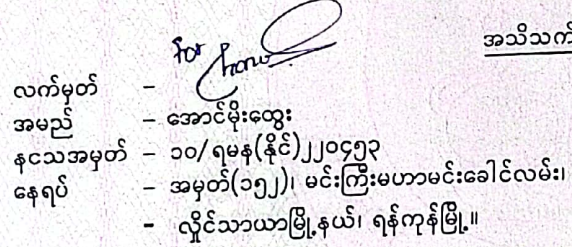 for
အသိသက်
လက်မှတ် -
အမည် - အောင်မိုးထွေး
နငသအမှတ် - ၁၀/ရမန(နိုင်)၂၂၀၄၅၃
နေရပ် - အမှတ်(၁၅၂)၊ မင်းကြီးမဟာမင်းခေါင်လမ်း၊
- လှိုင်သာယာမြို့နယ်၊ ရန်ကုန်မြို့။